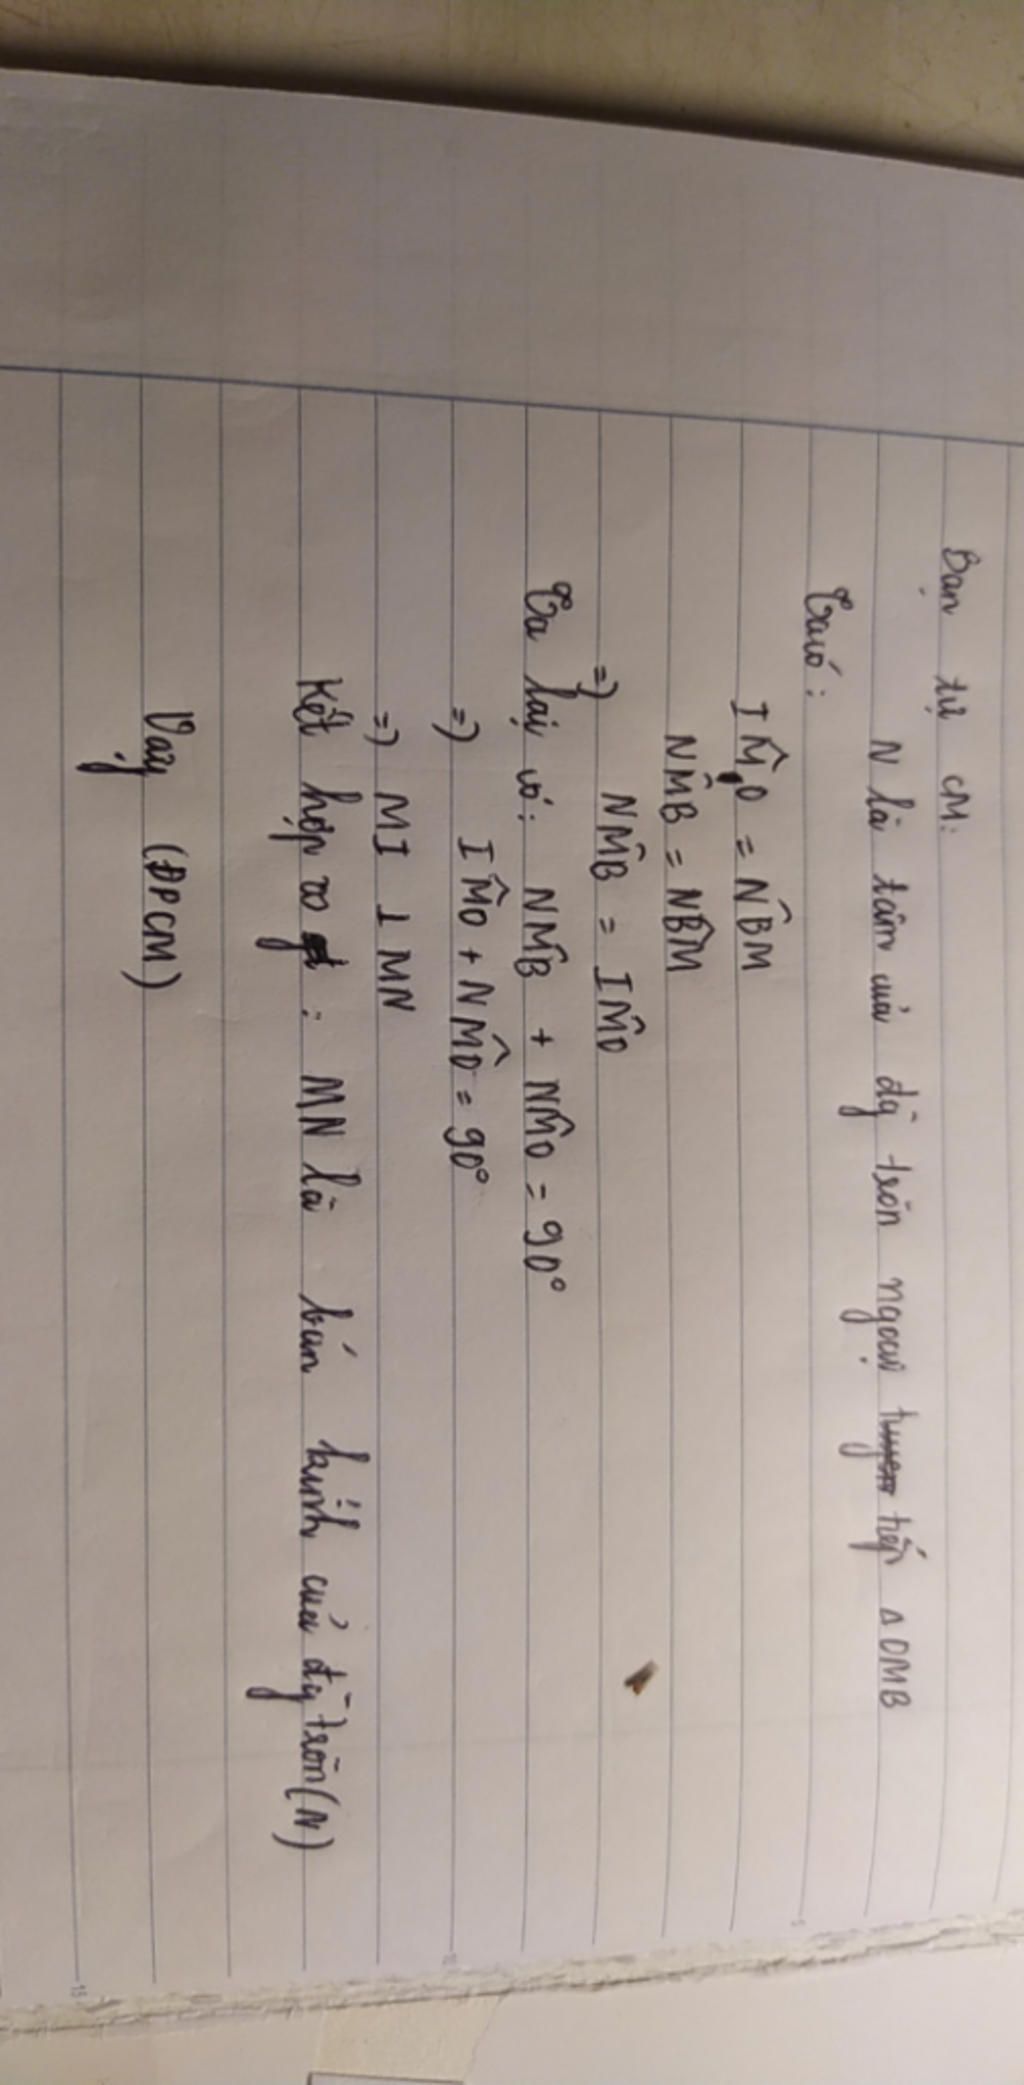 Bạn tự CM:
N là tâm của đg tròn ngoại tiếp ΔOMB
Ta có:
IM̂O = NB̂M
NM̂B = NB̂M
=> NM̂B = IM̂O
Ta lại có: NM̂B + NM̂O = 90°
=> IM̂O + NM̂O = 90°
=> MI ⊥ MN
Kết hợp : MN là bán kính của đg tròn (N)
Vậy (ĐPCM)
15